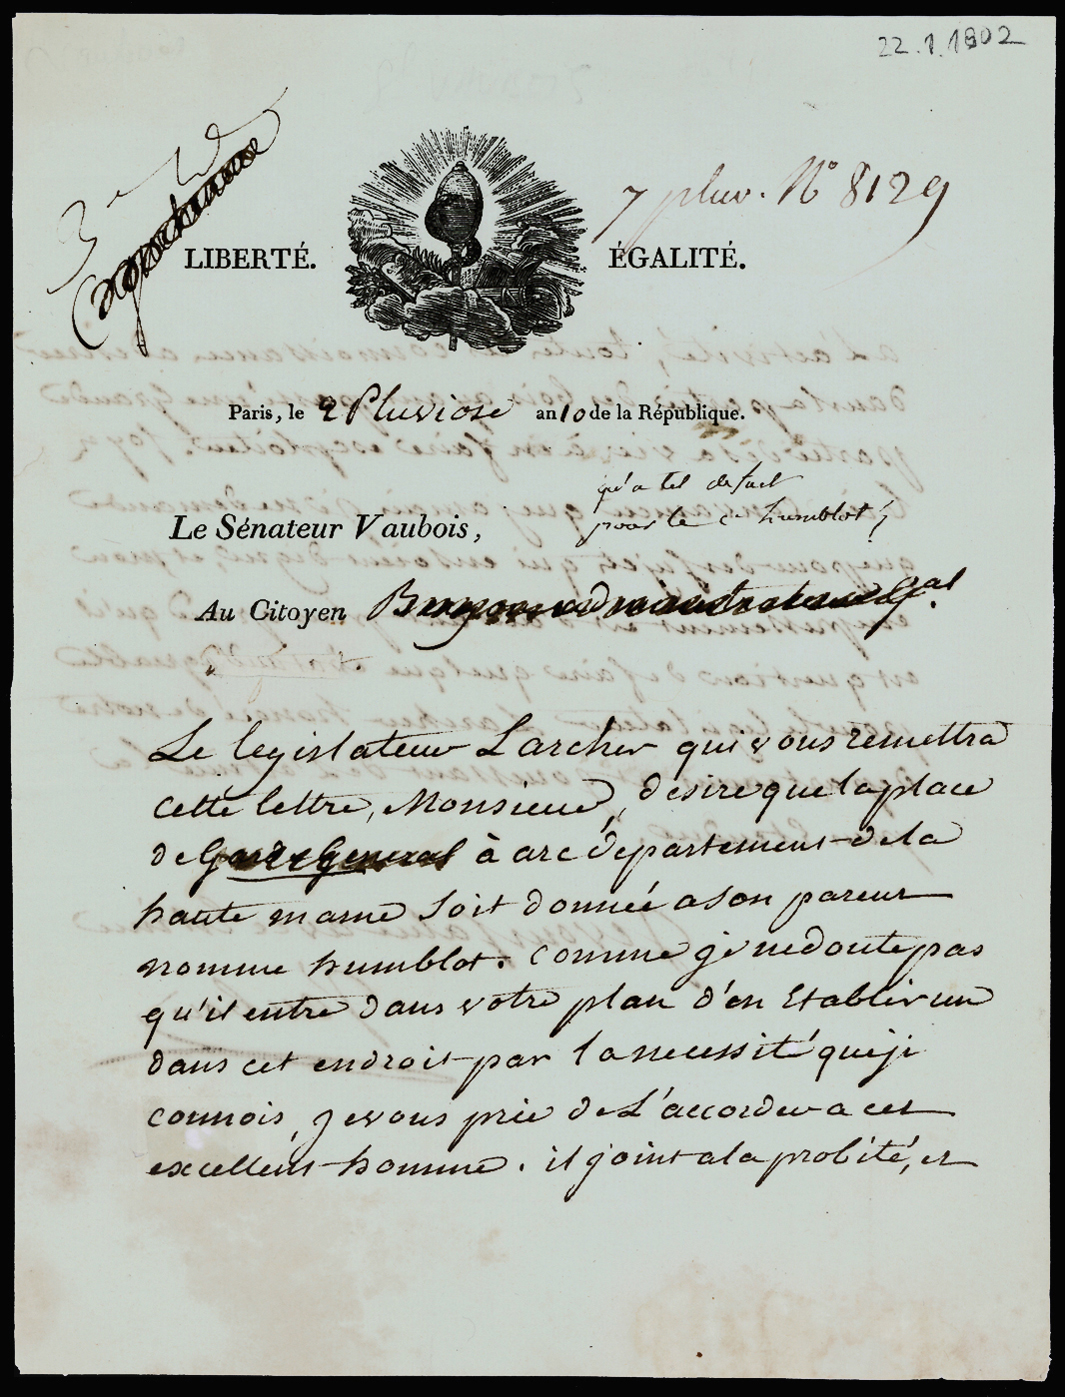 22.1.1802
3e D
7 pluv. N° 8129
LIBERTÉ. ÉGALITÉ.
Paris, le 2 Pluviose an 10 de la République.
qu'a tel defaut
pour le cen humblot ?
Le Sénateur Vaubois,
Au Citoyen administrateur Gal
Le legislateur Larcher qui vous remettra
cette lettre, Monsieur, desire que la place
de Garde General à arc departement de la
haute marne soit donnée a son parent
nomme humblot. Comme je ne doute pas
qu'il entre dans votre plan d'en Etablir un
dans cet endroit par la necessité que je
connois, je vous prie de L'accorder a cet
excellent homme. il joint a la probité, et